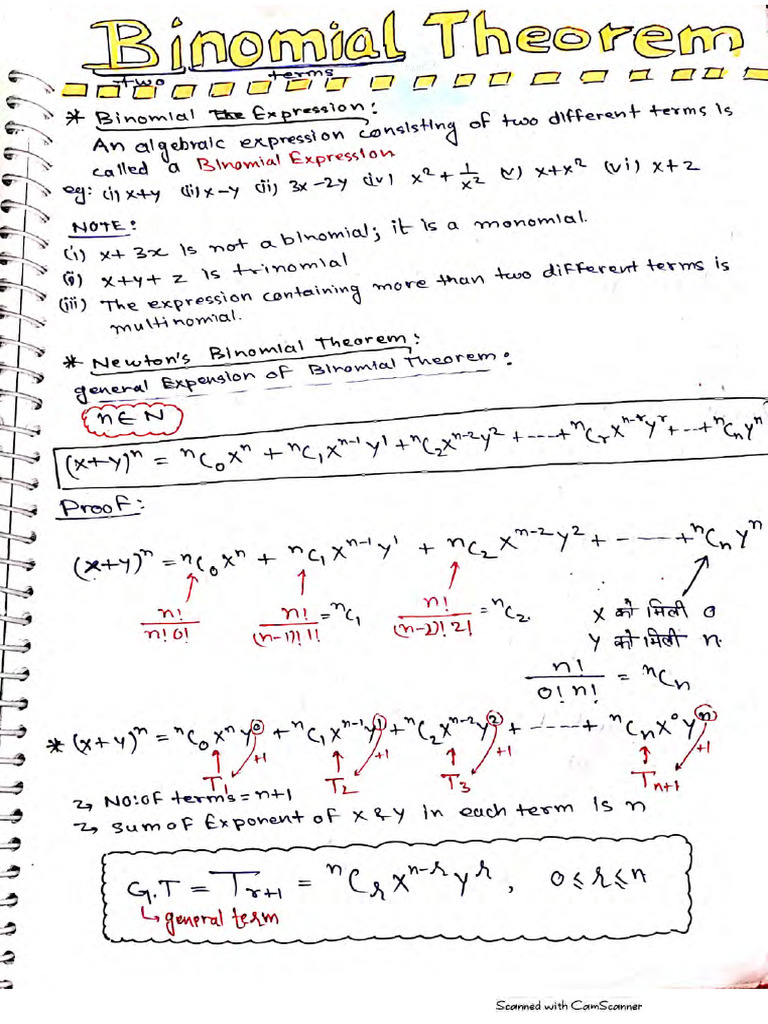 Binomial Theorem
two terms
* Binomial the Expression:
An algebraic expression consisting of two different terms is
called a Binomial Expression
eg: (i) x+y (ii) x-y (ii) 3x-2y (iv) x² + 1/x² (v) x+x² (vi) x+2
NOTE:
(i) x+3x is not a binomial; it is a monomial.
(ii) x+y+z is trinomial
(iii) The expression containing more than two different terms is
multinomial.
* Newton's Binomial Theorem:
general Expension of Binomial Theorem:
n∈N
(x+y)ⁿ = ⁿC₀xⁿ + ⁿC₁xⁿ⁻¹y¹ + ⁿC₂xⁿ⁻²y² + ---- + ⁿCᵣxⁿ⁻ʳyʳ + --- + ⁿCₙyⁿ
Proof:
(x+y)ⁿ = ⁿC₀xⁿ + ⁿC₁xⁿ⁻¹y¹ + ⁿC₂xⁿ⁻²y² + - ---- + ⁿCₙyⁿ
n!/n!0! n!/(n-1)!1! = ⁿC₁ n!/(n-2)!2! = ⁿC₂ x को मिली 0
y को मिली n.
n!/0!n! = ⁿCₙ
* (x+y)ⁿ = ⁿC₀xⁿy⁰ + ⁿC₁xⁿ⁻¹y¹ + ⁿC₂xⁿ⁻²y² + ----- + ⁿCₙx⁰yⁿ
+1 +1 +1 +1
T₁ T₂ T₃ Tₙ₊₁
No: of terms = n+1
Sum of Exponent of x & y in each term is n
G.T = Tᵣ₊₁ = ⁿCᵣxⁿ⁻ʳyʳ, 0≤r≤n
general term
Scanned with CamScanner